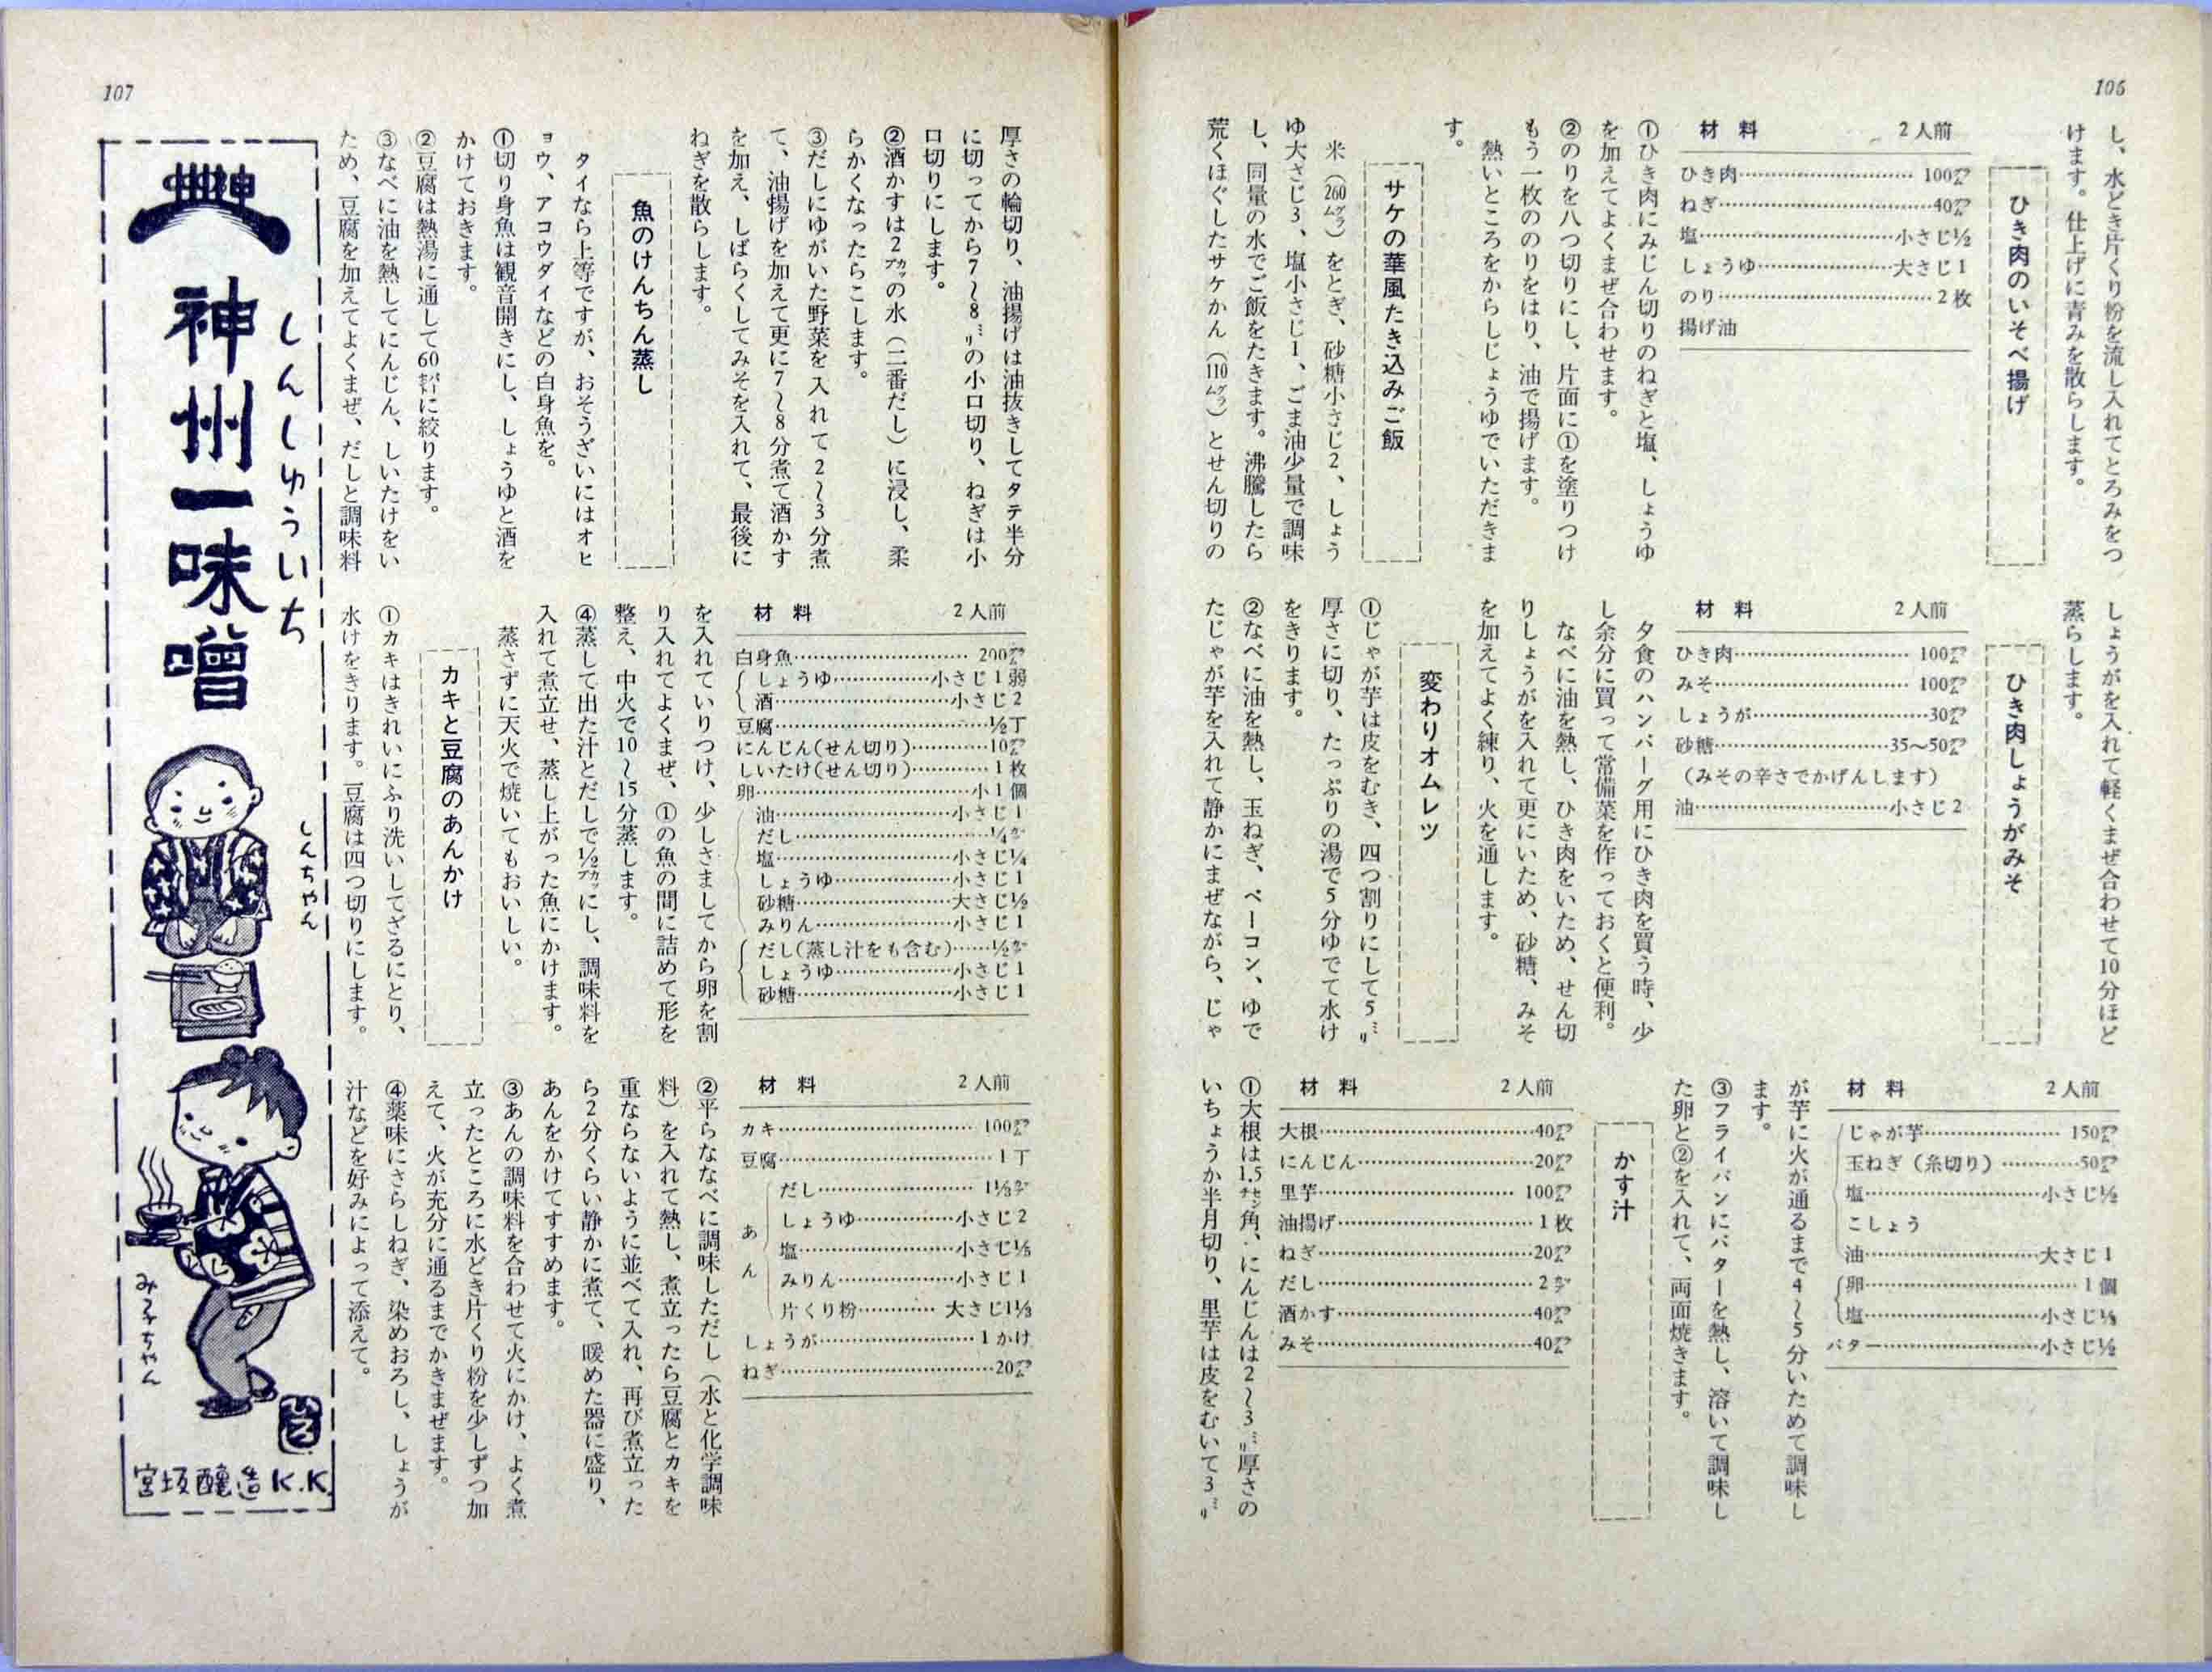 106
し、水どき片くり粉を流し入れてとろみをつ
けます。仕上げに青みを散らします。
ひき肉のいそべ揚げ
材料 2人前
ひき肉…100㌘
ねぎ…40㌘
塩…小さじ½
しょうゆ…大さじ1
のり…2枚
揚げ油
①ひき肉にみじん切りのねぎと塩、しょうゆ
を加えてよくまぜ合わせます。
②のりを八つ切りにし、片面に①を塗りつけ
もう一枚ののりをはり、油で揚げます。
熱いところをからしじょうゆでいただきま
す。
サケの華風たき込みご飯
米（260㌘）をとぎ、砂糖小さじ2、しょう
ゆ大さじ3、塩小さじ1、ごま油少量で調味
し、同量の水でご飯をたきます。沸騰したら
荒くほぐしたサケかん（110㌘）とせん切りの
しょうがを入れて軽くまぜ合わせて10分ほど
蒸らします。
ひき肉しょうがみそ
材料 2人前
ひき肉…100㌘
みそ…100㌘
しょうが…30㌘
砂糖…35〜50㌘
（みその辛さでかげんします）
油…小さじ2
夕食のハンバーグ用にひき肉を買う時、少
し余分に買って常備菜を作っておくと便利。
なべに油を熱し、ひき肉をいため、せん切
りしょうがを入れて更にいため、砂糖、みそ
を加えてよく練り、火を通します。
変わりオムレツ
①じゃが芋は皮をむき、四つ割りにして5㍉
厚さに切り、たっぷりの湯で5分ゆでて水け
をきります。
②なべに油を熱し、玉ねぎ、ベーコン、ゆで
たじゃが芋を入れて静かにまぜながら、じゃ
材料 2人前
じゃが芋…150㌘
玉ねぎ（糸切り）…50㌘
塩…小さじ½
こしょう
油…大さじ1
卵…1個
塩…小さじ⅛
バター…小さじ½
が芋に火が通るまで4〜5分いためて調味し
ます。
③フライパンにバターを熱し、溶いて調味し
た卵と②を入れて、両面焼きます。
かす汁
材料 2人前
大根…40㌘
にんじん…20㌘
里芋…100㌘
油揚げ…1枚
ねぎ…20㌘
だし…2㌍
酒かす…40㌘
みそ…40㌘
①大根は1.5㌢角、にんじんは2〜3㍉厚さの
いちょうか半月切り、里芋は皮をむいて3㍉
107
厚さの輪切り、油揚げは油抜きしてタテ半分
に切ってから7〜8㍉の小口切り、ねぎは小
口切りにします。
②酒かすは2カップの水（二番だし）に浸し、柔
らかくなったらこします。
③だしにゆがいた野菜を入れて2〜3分煮
て、油揚げを加えて更に7〜8分煮て酒かす
を加え、しばらくしてみそを入れて、最後に
ねぎを散らします。
魚のけんちん蒸し
タイなら上等ですが、おそうざいにはオヒ
ョウ、アコウダイなどの白身魚を。
①切り身魚は観音開きにし、しょうゆと酒を
かけておきます。
②豆腐は熱湯に通して60㌫に絞ります。
③なべに油を熱してにんじん、しいたけをい
ため、豆腐を加えてよくまぜ、だしと調味料
材料 2人前
白身魚…200㌘
しょうゆ…小さじ1弱
酒…小さじ2
豆腐…½丁
にんじん（せん切り）…10㌘
しいたけ（せん切り）…1枚
卵…小1個
油…小さじ1
だし…¼㌍
塩…小さじ¼
しょうゆ…小さじ1
砂糖…大さじ½
みりん…小さじ1
だし（蒸し汁をも含む）…½㌍
しょうゆ…小さじ1
砂糖…小さじ1
を入れていりつけ、少しさましてから卵を割
り入れてよくまぜ、①の魚の間に詰めて形を
整え、中火で10〜15分蒸します。
④蒸して出た汁とだしで½カップにし、調味料を
入れて煮立せ、蒸し上がった魚にかけます。
蒸さずに天火で焼いてもおいしい。
カキと豆腐のあんかけ
①カキはきれいにふり洗いしてざるにとり、
水けをきります。豆腐は四つ切りにします。
材料 2人前
カキ…100㌘
豆腐…1丁
あん
だし…1⅓㌍
しょうゆ…小さじ2
塩…小さじ⅓
みりん…小さじ1
片くり粉…大さじ1⅓
しょうが…1かけ
ねぎ…20㌘
②平らななべに調味しただし（水と化学調味
料）を入れて熱し、煮立ったら豆腐とカキを
重ならないように並べて入れ、再び煮立った
ら2分くらい静かに煮て、暖めた器に盛り、
あんをかけてすすめます。
③あんの調味料を合わせて火にかけ、よく煮
立ったところに水どき片くり粉を少しずつ加
えて、火が充分に通るまでかきまぜます。
④薬味にさらしねぎ、染めおろし、しょうが
汁などを好みによって添えて。
しんしゅういち
神州一味噌
しんちゃん
みそちゃん
宮坂醸造K.K.